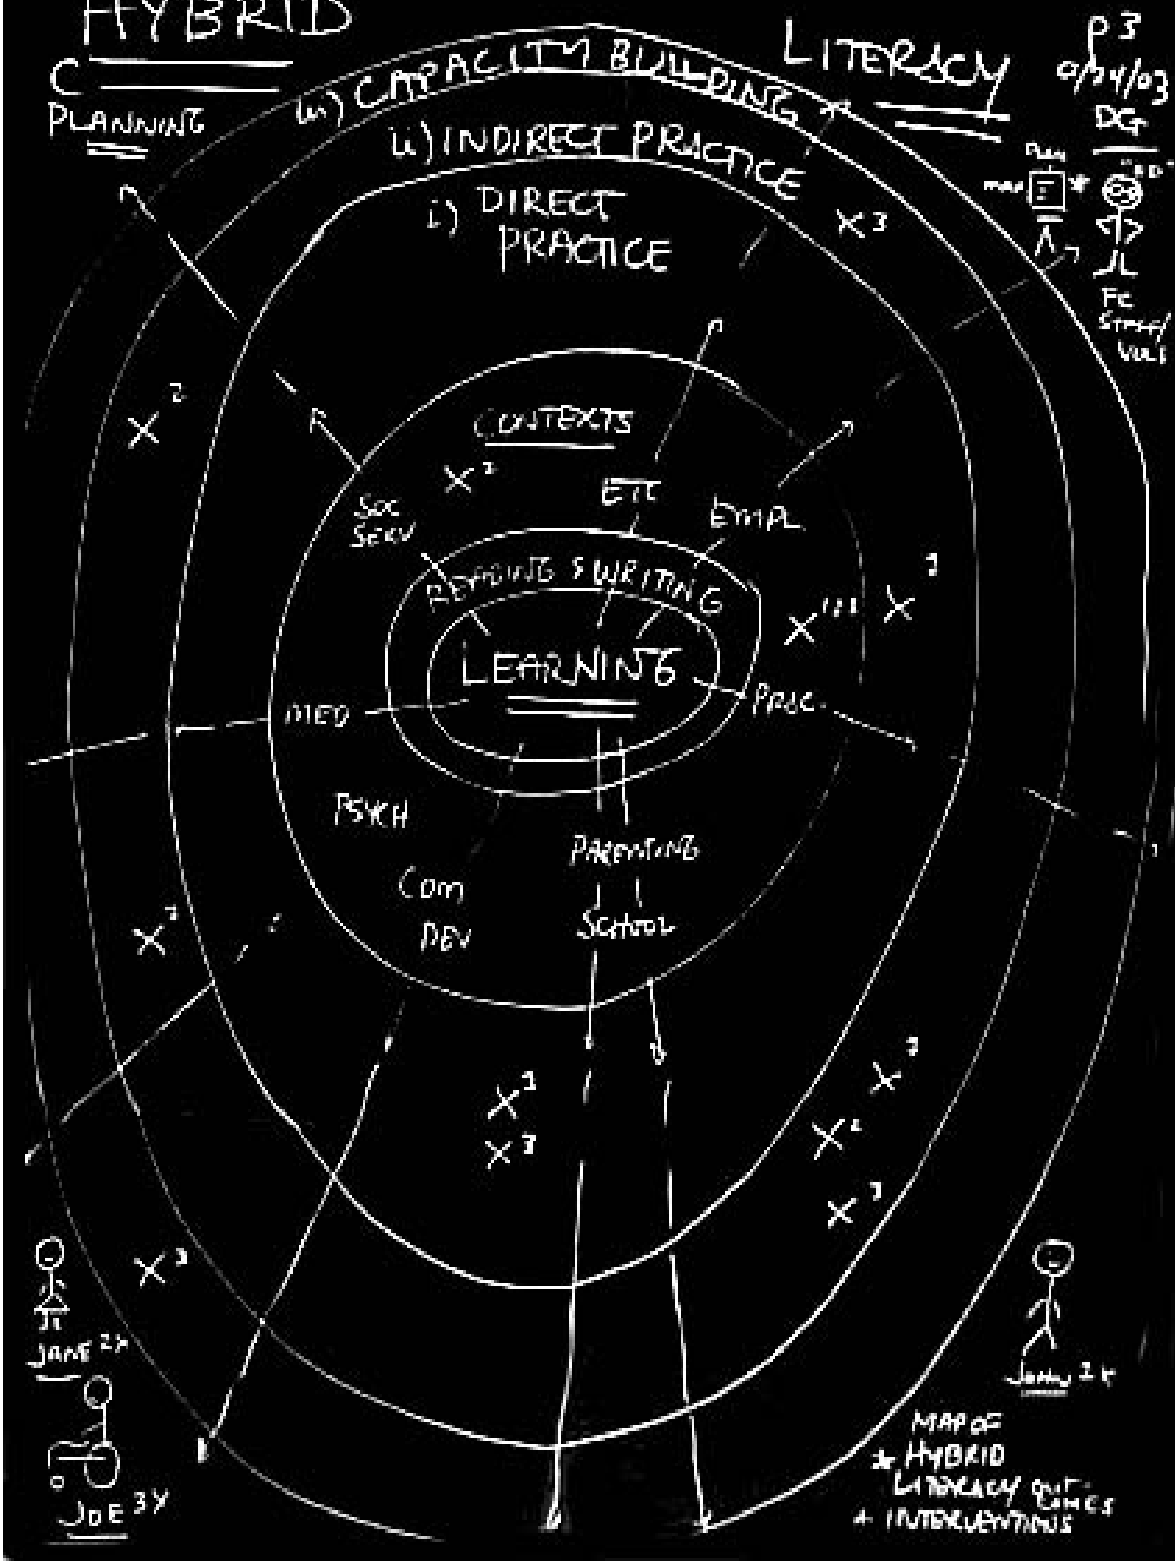 HYBRID
LITERACY
p3
DG
C
PLANNING
iii) CAPACITY BUILDING
ii) INDIRECT PRACTICE
i) DIRECT
PRACTICE
PLAN
MAP
*
FC
STAFF/
VOLS
X 3
X 2
CONTEXTS
X 2
SOC
SERV
ETC
EMPL.
READING & WRITING
LEARNING
MED
PROC.
PSYCH
PARENTING
COM
DEV
SCHOOL
X 3
X 2
X 3
X 3
JANE
JOE
JOHN
MAP OF
* HYBRID
LITERACY OUT-
COMES
+ INTERVENTIONS